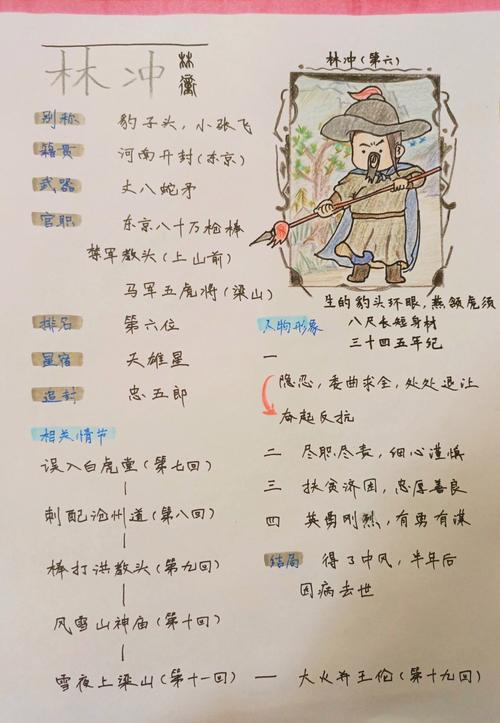 林冲 林衝
别称 豹子头，小张飞
籍贯 河南开封(东京)
武器 丈八蛇矛
官职 东京八十万枪棒
禁军教头(上山前)
马军五虎将(梁山)
排名 第六位
星宿 天雄星
追封 忠五郎
相关情节
误入白虎堂(第七回)
刺配沧州道(第八回)
棒打洪教头(第九回)
风雪山神庙(第十回)
雪夜上梁山(第十一回) — 大火并王伦(第十九回)
林冲(第六)
生的豹头环眼，燕颔虎须
八尺长短身材
三十四五年纪
人物形象
一
隐忍，委曲求全，处处退让
奋起反抗
二 尽职尽责，细心谨慎
三 扶贫济困，忠厚善良
四 英勇刚烈，有勇有谋
结局 得了中风，半年后
因病去世